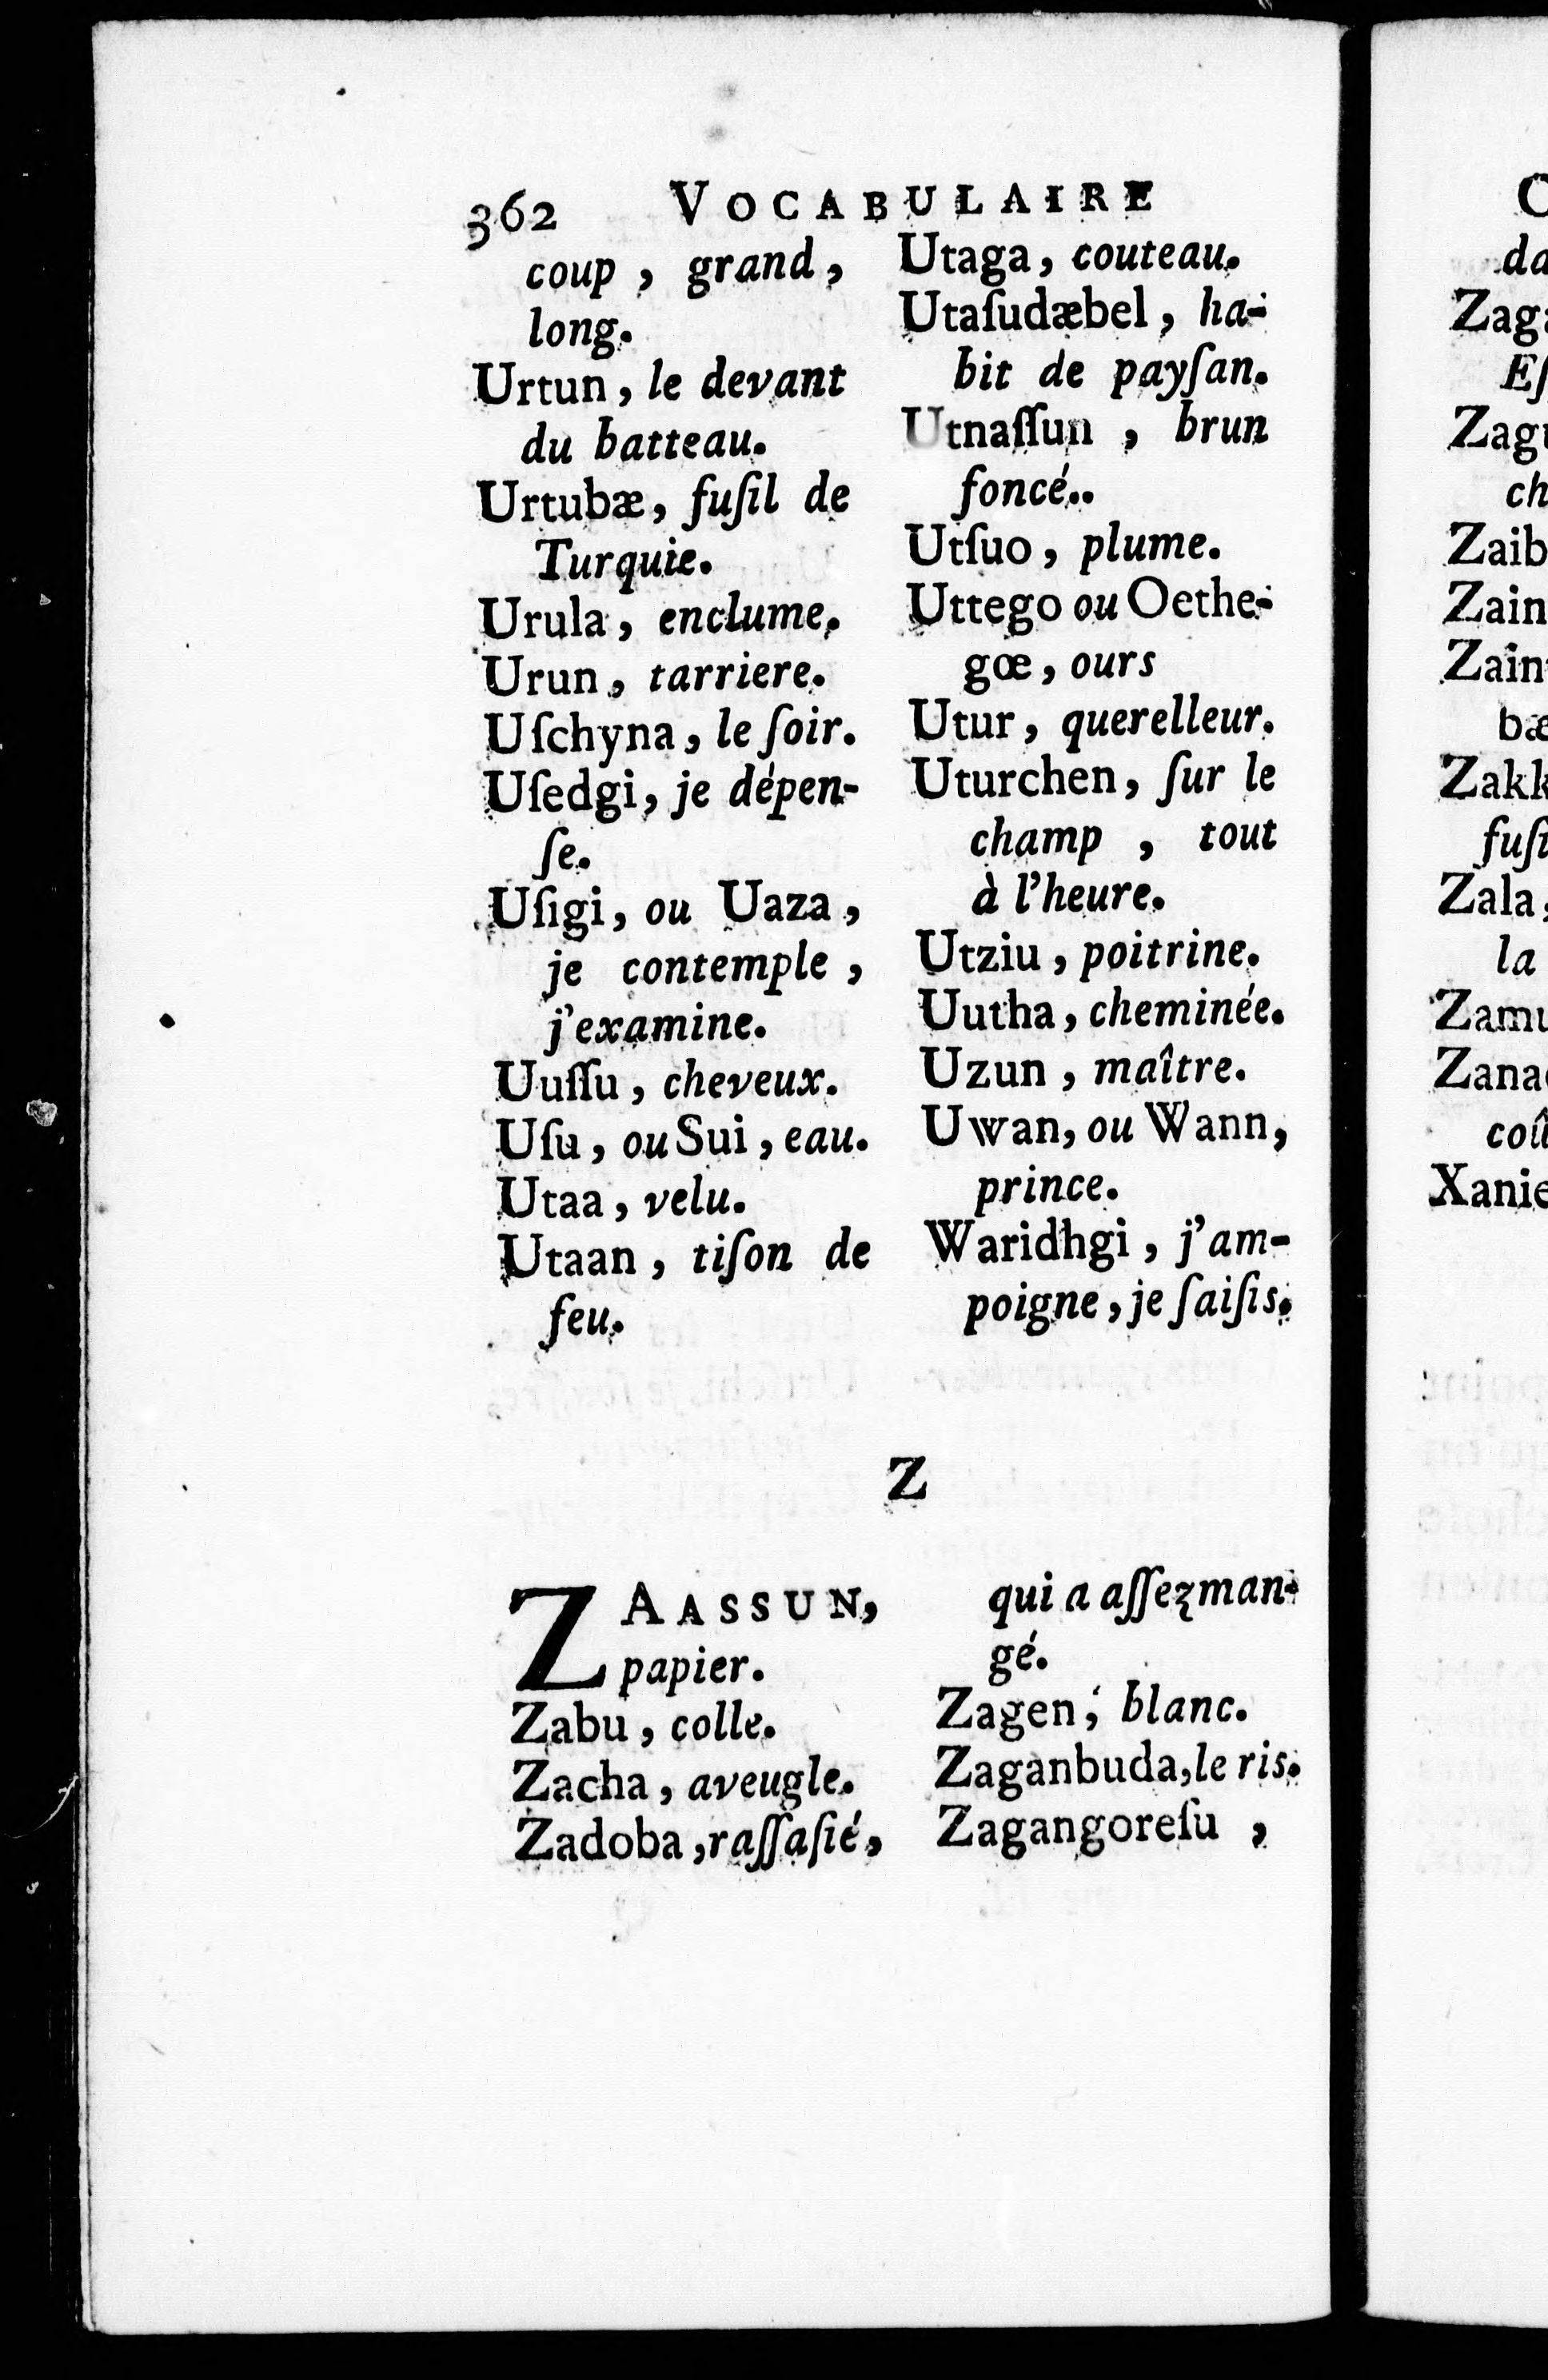 362 VOCABULAIRE
coup, grand,
long.
Urtun, le devant
du batteau.
Urtubæ, fuſil de
Turquie.
Urula, enclume.
Urun, tarriere.
Uſchyna, le ſoir.
Uſedgi, je dépen-
ſe.
Uſigi, ou Uaza,
je contemple,
j'examine.
Uuſſu, cheveux.
Uſu, ou Sui, eau.
Utaa, velu.
Utaan, tiſon de
feu.
Utaga, couteau.
Utaſudæbel, ha-
bit de payſan.
Utnaſſun, brun
foncé..
Utſuo, plume.
Uttego ou Oethe-
gœ, ours
Utur, querelleur.
Uturchen, ſur le
champ, tout
à l'heure.
Utziu, poitrine.
Uutha, cheminée.
Uzun, maître.
Uwan, ou Wann,
prince.
Waridhgi, j'am-
poigne, je ſaiſis.
Z
ZAASSUN,
papier.
Zabu, colle.
Zacha, aveugle.
Zadoba, raſſaſié,
qui a aſſez man-
gé.
Zagen, blanc.
Zaganbuda, le ris.
Zagangoreſu,
da
Zag
Eſ
Zag
ch
Zaib
Zain
Zain
bæ
Zakk
fuſi
Zala,
la
Zamu
Zana
coû
Xanie